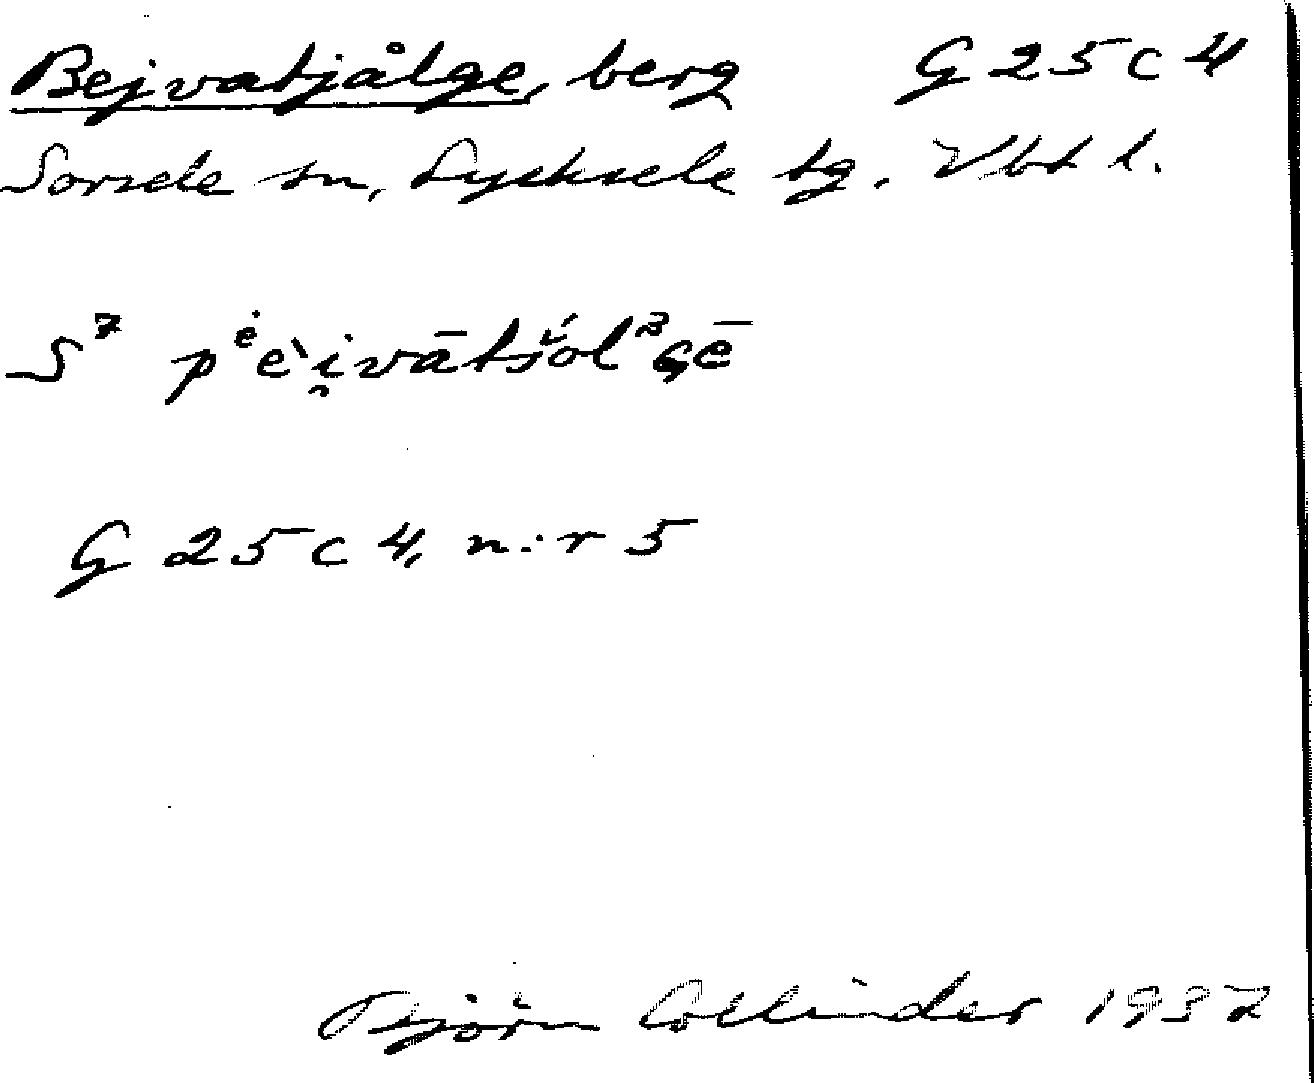 Bejvatjålge, berg G 25 c 4
Sorsele sn, Lycksele tg. Vbt l.
S⁷ pᵉ̇èi̯vāts̆́olᶾɢē
G 25 c 4, n:r 5
Björn Collinder 1937